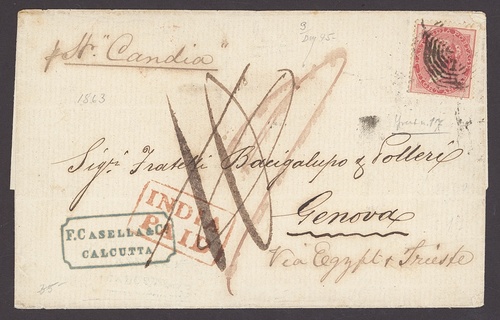 p Str "Candia"
1863
Sigri Fratelli Bacigalupo & Tolleri
Genova
Via Egypt & Trieste
INDIA
PAID
F. CASELLA & Co
CALCUTTA